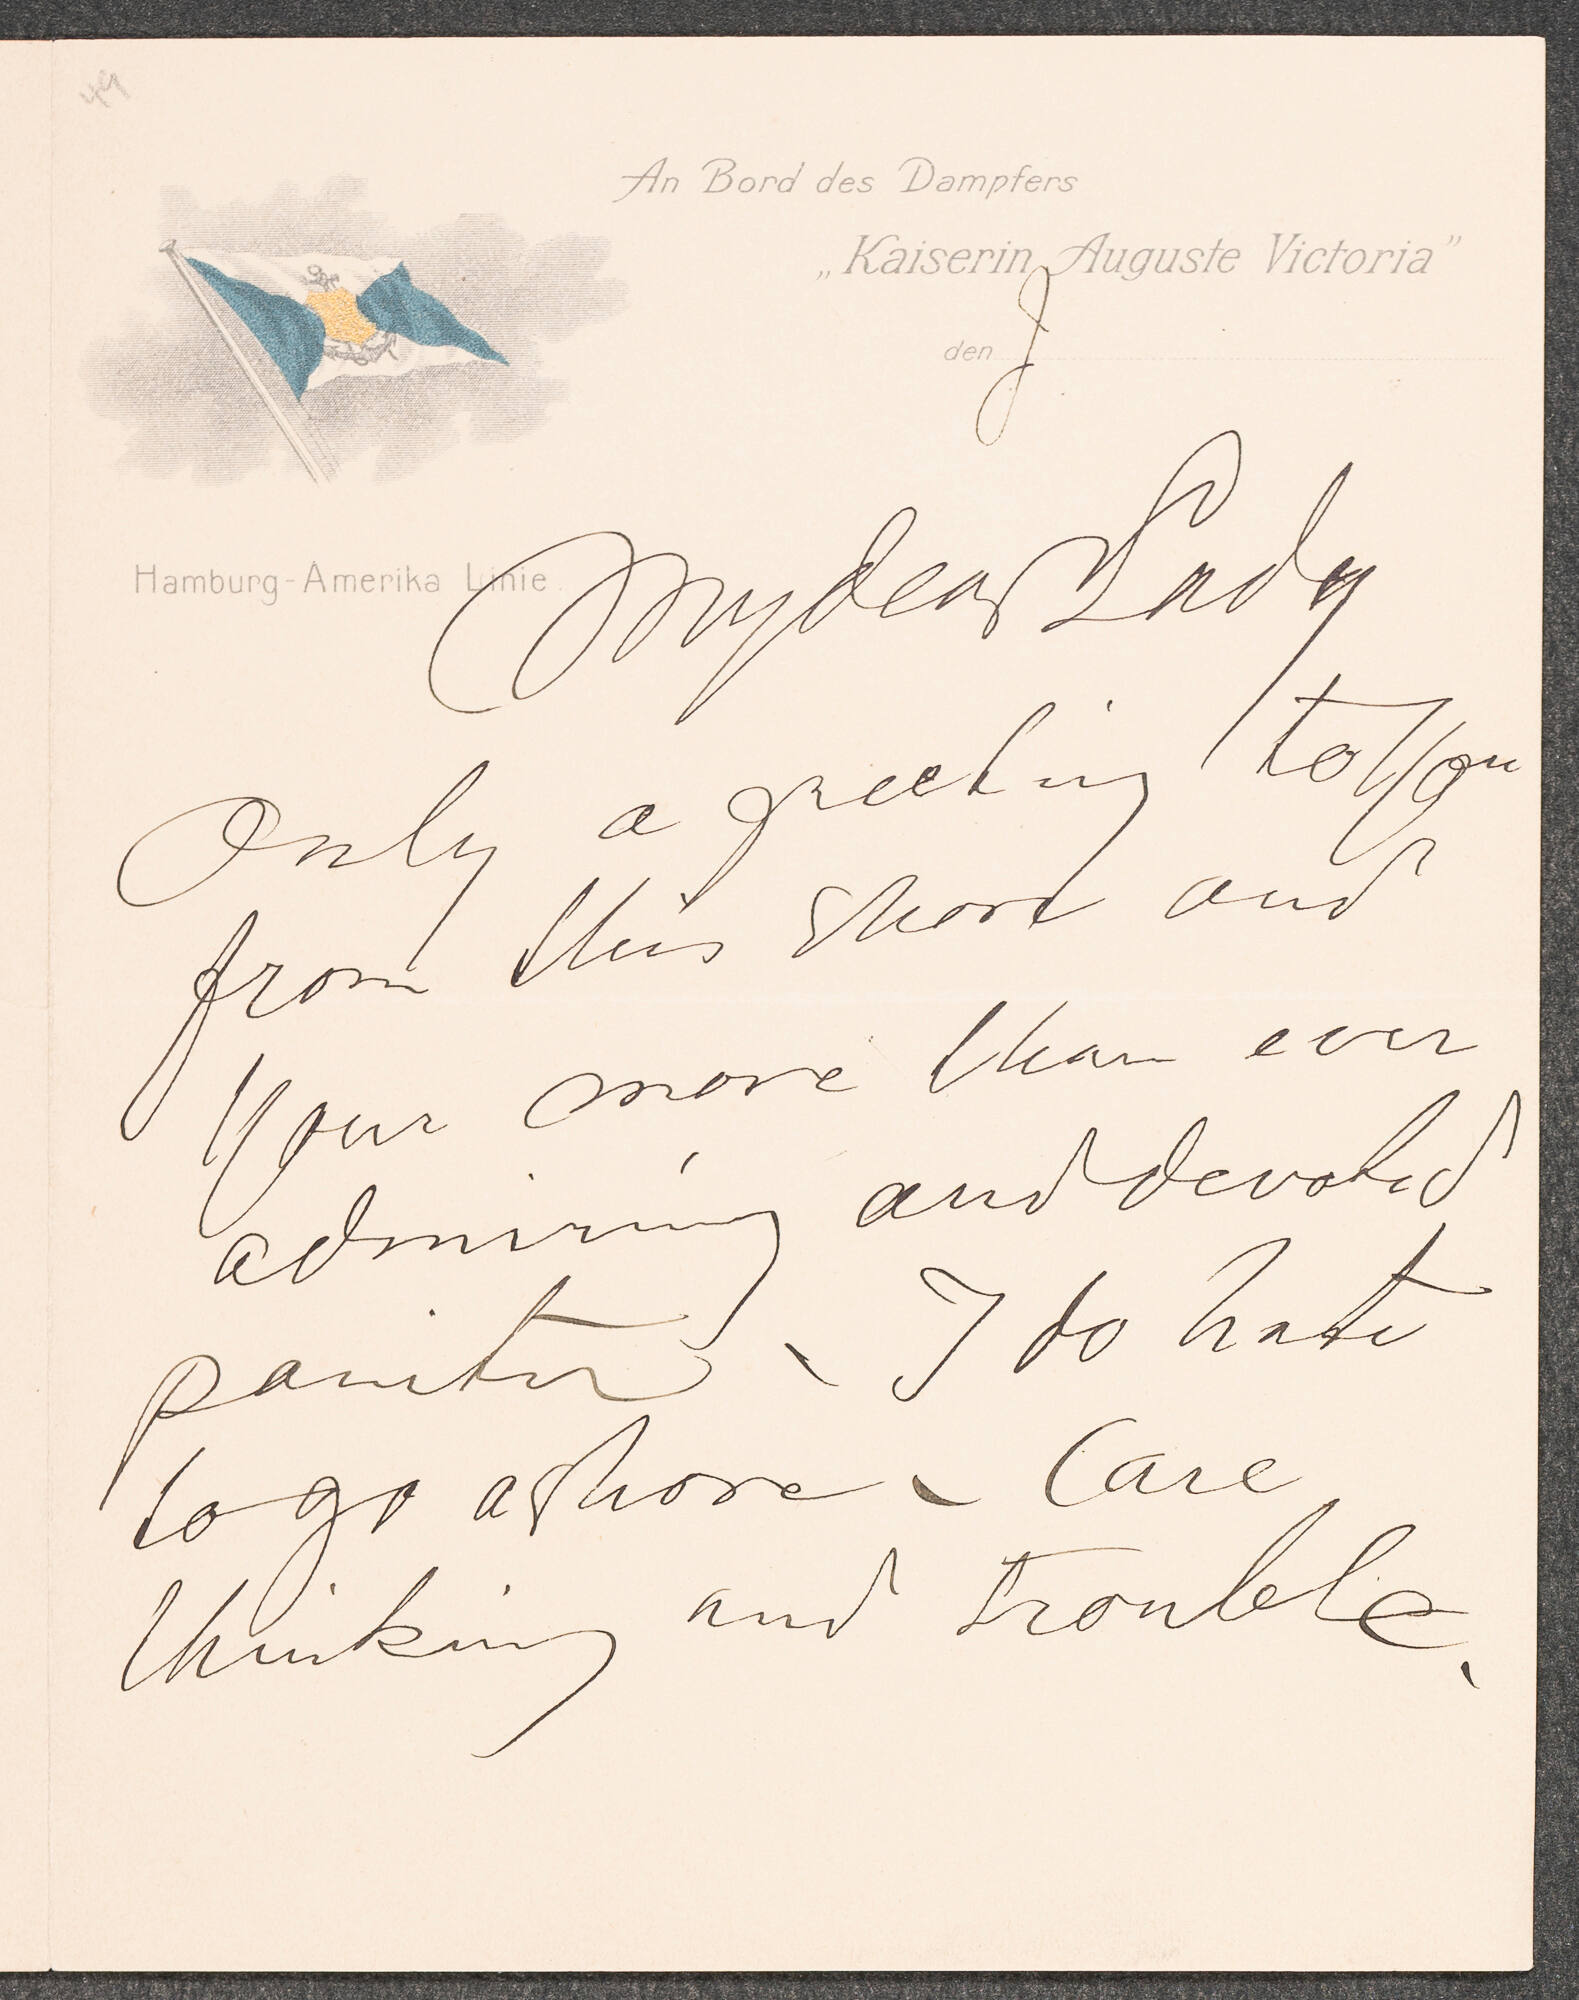 49
An Bord des Dampfers
„Kaiserin Auguste Victoria"
den J
Hamburg-Amerika Linie.
My dear Lady
Only a greeting to You
from this shore and
Your more than ever
admiring and devoted
painter. I do hate
to go ashore. Care
thinking and trouble.